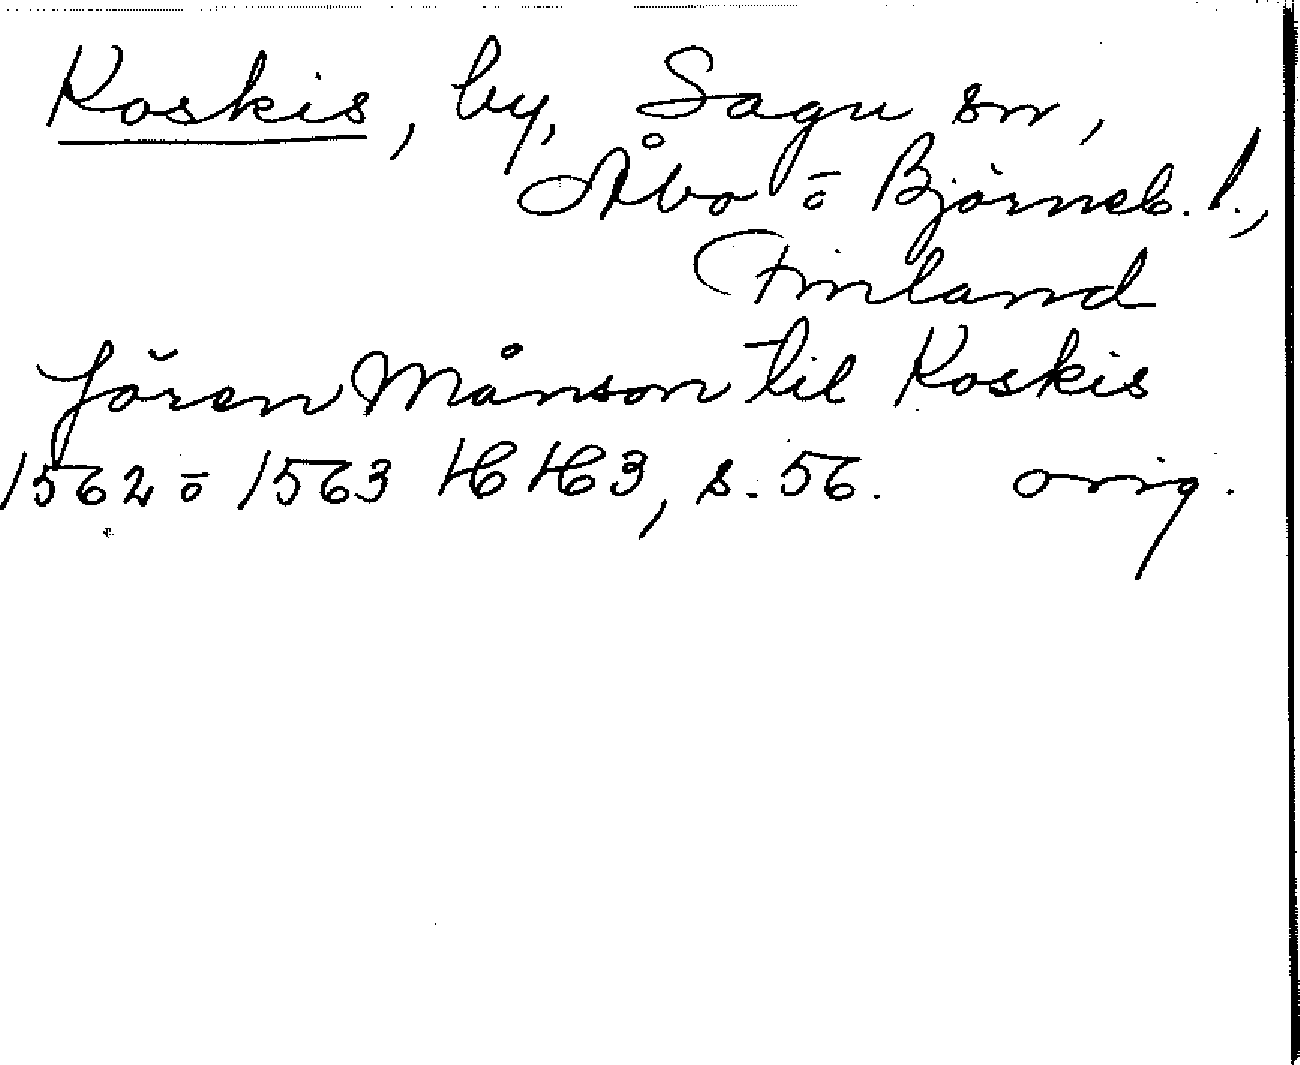 Koskis, by, Sagu sn,
Åbo o Björneb. l.,
Finland
Jören Månson til Koskis
1562 o 1563 HH3, s. 56. orig.